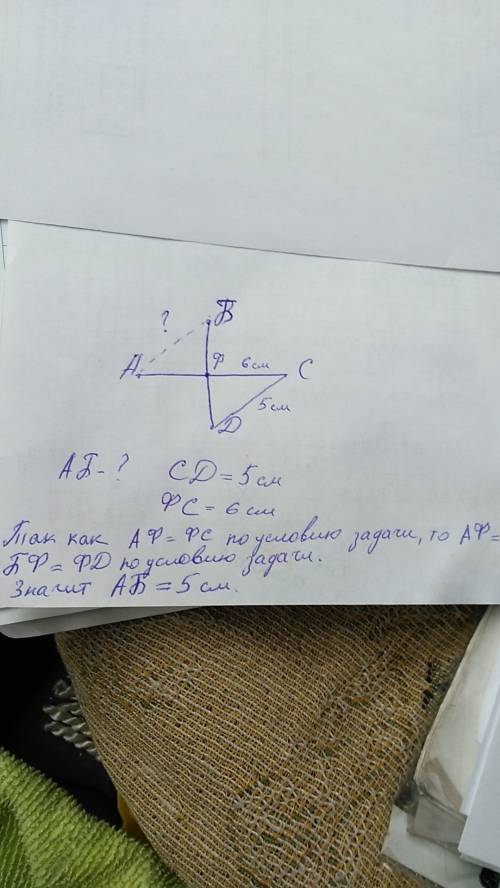 ?
Б
А
Ф 6 см
С
5 см
D
АБ - ? CD = 5 см
ФС = 6 см
Так как АФ = ФС по условию задачи, то АФ =
БФ = ФD по условию задачи.
Значит АБ = 5 см.